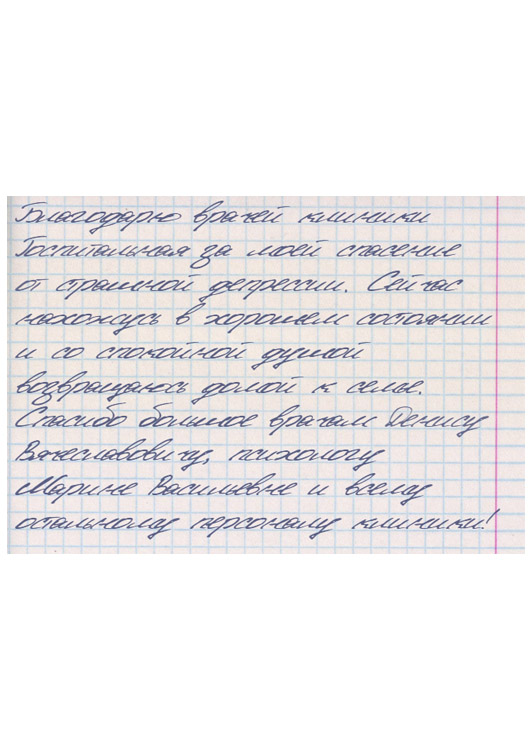 Благодарю врачей клиники
Госпитальная за моей спасение
от страшной депрессии. Сейчас
нахожусь в хорошем состоянии
и со спокойной душой
возвращаюсь домой к семье.
Спасибо большое врачам Денису
Вячеславовичу, психологу
Марине Васильевне и всему
остальному персоналу клиники!